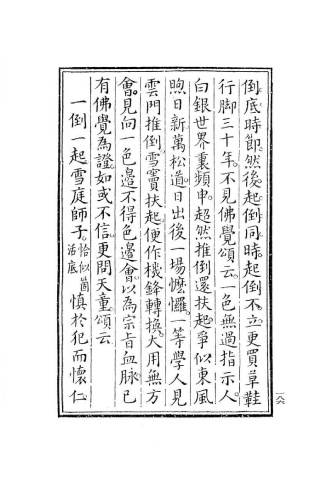 倒底時節。然後起倒同時。起倒不立。更買草鞋
行脚三十年。不見佛覺頌云。一色無過指示人。
白銀世界裏頻申。超然推倒還扶起。爭似東風
煦日新。萬松道。日出後一場㦬㦬。一等學人見
雲門推倒雪竇扶起。便作機鋒轉換。大用無方
會。見向一色邊不得色邊會。以為宗旨血脉。已
有佛覺為證。如或不信。更問天童。頌云
一倒一起雪庭師子。恰似箇活底慎於犯而懷仁。
一八六